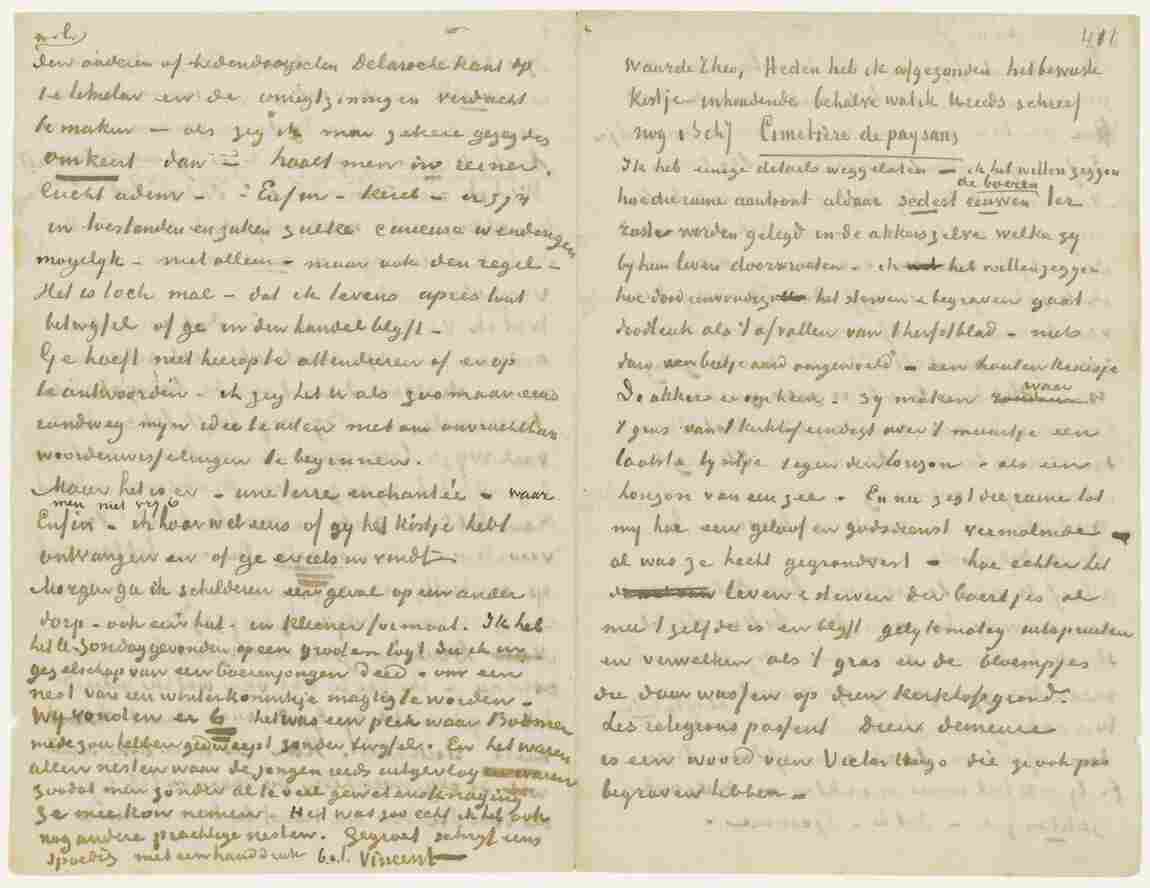 den anderen of hedendaagschen Delaroche kant op
te likmelar en de omertzinningen verdacht
te maken — als zeg ik maar zekere gezegdes
omkeert dan — haalt men in reiner
lucht adem — Enfin — kerel — er zyn
in toestanden en zaken zulke curieuse wendingen
mogelyk — niet alleen — maar ook den regel —
Het is toch mal — dat ik tevens après tout
betwyfel of ge in den handel blyft —
Ge hoeft niet hierop te attendeeren of er op
te antwoorden — ik zeg het U als zoo maar eens
rondweg myn idee te uiten niet om onvruchtbare
woordenwisselingen te beginnen.
Maar het is er — une terre enchantée — waar
men niet vry is
Enfin — ik hoor wel eens of gy het kistje hebt
ontvangen en of ge er iets in vondt.
Morgen ga ik schilderen een geval op een ander
dorp — ook een hut — in kleiner formaat. Ik heb
het ll. Zondag gevonden op een grooten togt die ik in
gezelschap van een boerenjongen deed — om een
nest van een winterkoninkje magtig te worden —
Wy vonden er 6 het was een plek waar Bodmer
mede zou hebben gedweept zonder twyfel. En het waren
allen nesten waar de jongen reeds uitgevlogen waren
zoodat men zonder al te veel gewetensknaging
ze mee kon nemen. Het was zoo echt ik heb ook
nog andere prachtige nesten. Gegroet schryf eens
spoedig met een handdruk b.à.t. Vincent
411
Waarde Theo, Heden heb ik afgezonden het bewuste
kistje inhoudende behalve wat ik reeds schreef
nog 1 schy Cimetière de paysans
Ik heb eenige details weggelaten — ik heb willen zeggen
de boeren
hoe die ruine aantoont aldaar sedert eeuwen ter
ruste worden gelegd in de akkers zelve welke zy
by hun leven doorwroeten — ik heb willen zeggen
hoe dood eenvoudig het sterven & begraven gaat
doodleuk als 't afvallen van 't herfstblad — niets
dan een beetje aard omgewoeld — een houten kruisje
waar
De akkers er om heen — zy maken
't gras van 't kerkhof eindigt over 't muurtje een
laatste lyntje tegen den horizon — als een
horizon van een zee. En nu zegt die ruine tot
my hoe een geloof en godsdienst vermolmde
al was ze hecht gegrondvest — hoe echter het
leven & sterven der boertjes al
maar 't zelfde is en blyft gelykmatig uitspruiten
en verwelken als 't gras en de bloempjes
die daar wassen op dien kerkhofgrond.
Les religions passent Dieu demeure
is een woord van Victor Hugo die ze ook pas
begraven hebben —